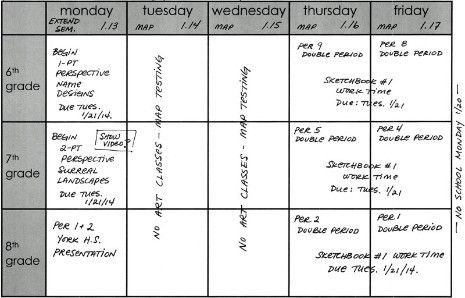 monday
EXTEND
SEM.
1.13
tuesday
MAP
1.14
wednesday
MAP
1.15
thursday
MAP
1.16
friday
MAP
1.17
6th
grade
BEGIN
1-PT
PERSPECTIVE
NAME
DESIGNS
DUE TUES.
1/21/14.
NO ART CLASSES - MAP TESTING
NO ART CLASSES - MAP TESTING
PER 9
DOUBLE PERIOD
PER 8
DOUBLE PERIOD
SKETCHBOOK #1
WORK TIME
DUE: TUES. 1/21
7th
grade
BEGIN
2-PT
PERSPECTIVE
SURREAL
LANDSCAPES
DUE TUES.
1/21/14
SHOW
VIDEO
PER 5
DOUBLE PERIOD
PER 4
DOUBLE PERIOD
SKETCHBOOK #1
WORK TIME
DUE: TUES. 1/21
8th
grade
PER 1+2
YORK H.S.
PRESENTATION
PER 2
DOUBLE PERIOD
PER 1
DOUBLE PERIOD
SKETCHBOOK #1 WORK TIME
DUE TUES. 1/21/14.
— NO SCHOOL MONDAY 1/20 —